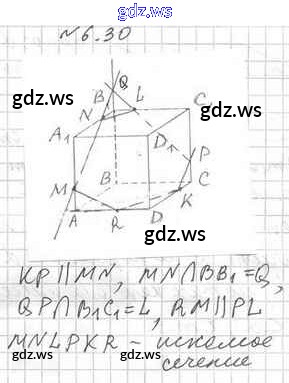 №6.30
gdz.ws
B₁ Q L C₁
N
gdz.ws
A₁ D₁ P
gdz.ws
M B C
K
A R D
gdz.ws
KP || MN, MN∩BB₁=Q,
QP∩B₁C₁=L, RM || PL
gdz.ws
MNLPKR – искомое
сечение
gdz.ws